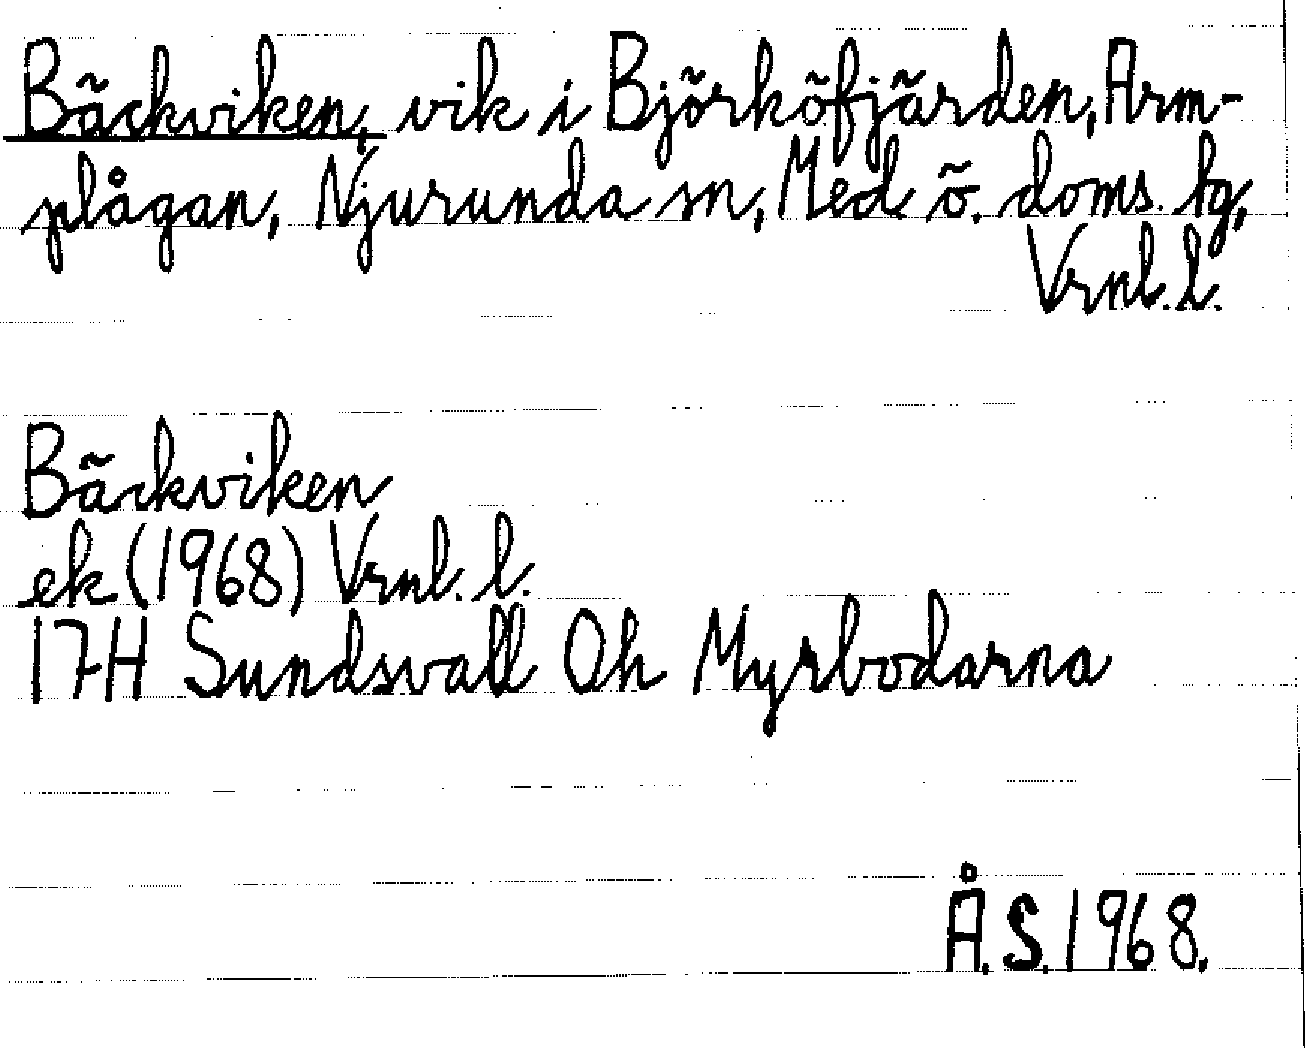 Bäckviken, vik i Björköfjärden, Arm-
plågan, Njurunda sn, Med. ö. doms. tg,
Vrnl. l.
Bäckviken
ek (1968) Vrnl. l.
17H Sundsvall 0h Myrbodarna
Å. S. 1968.